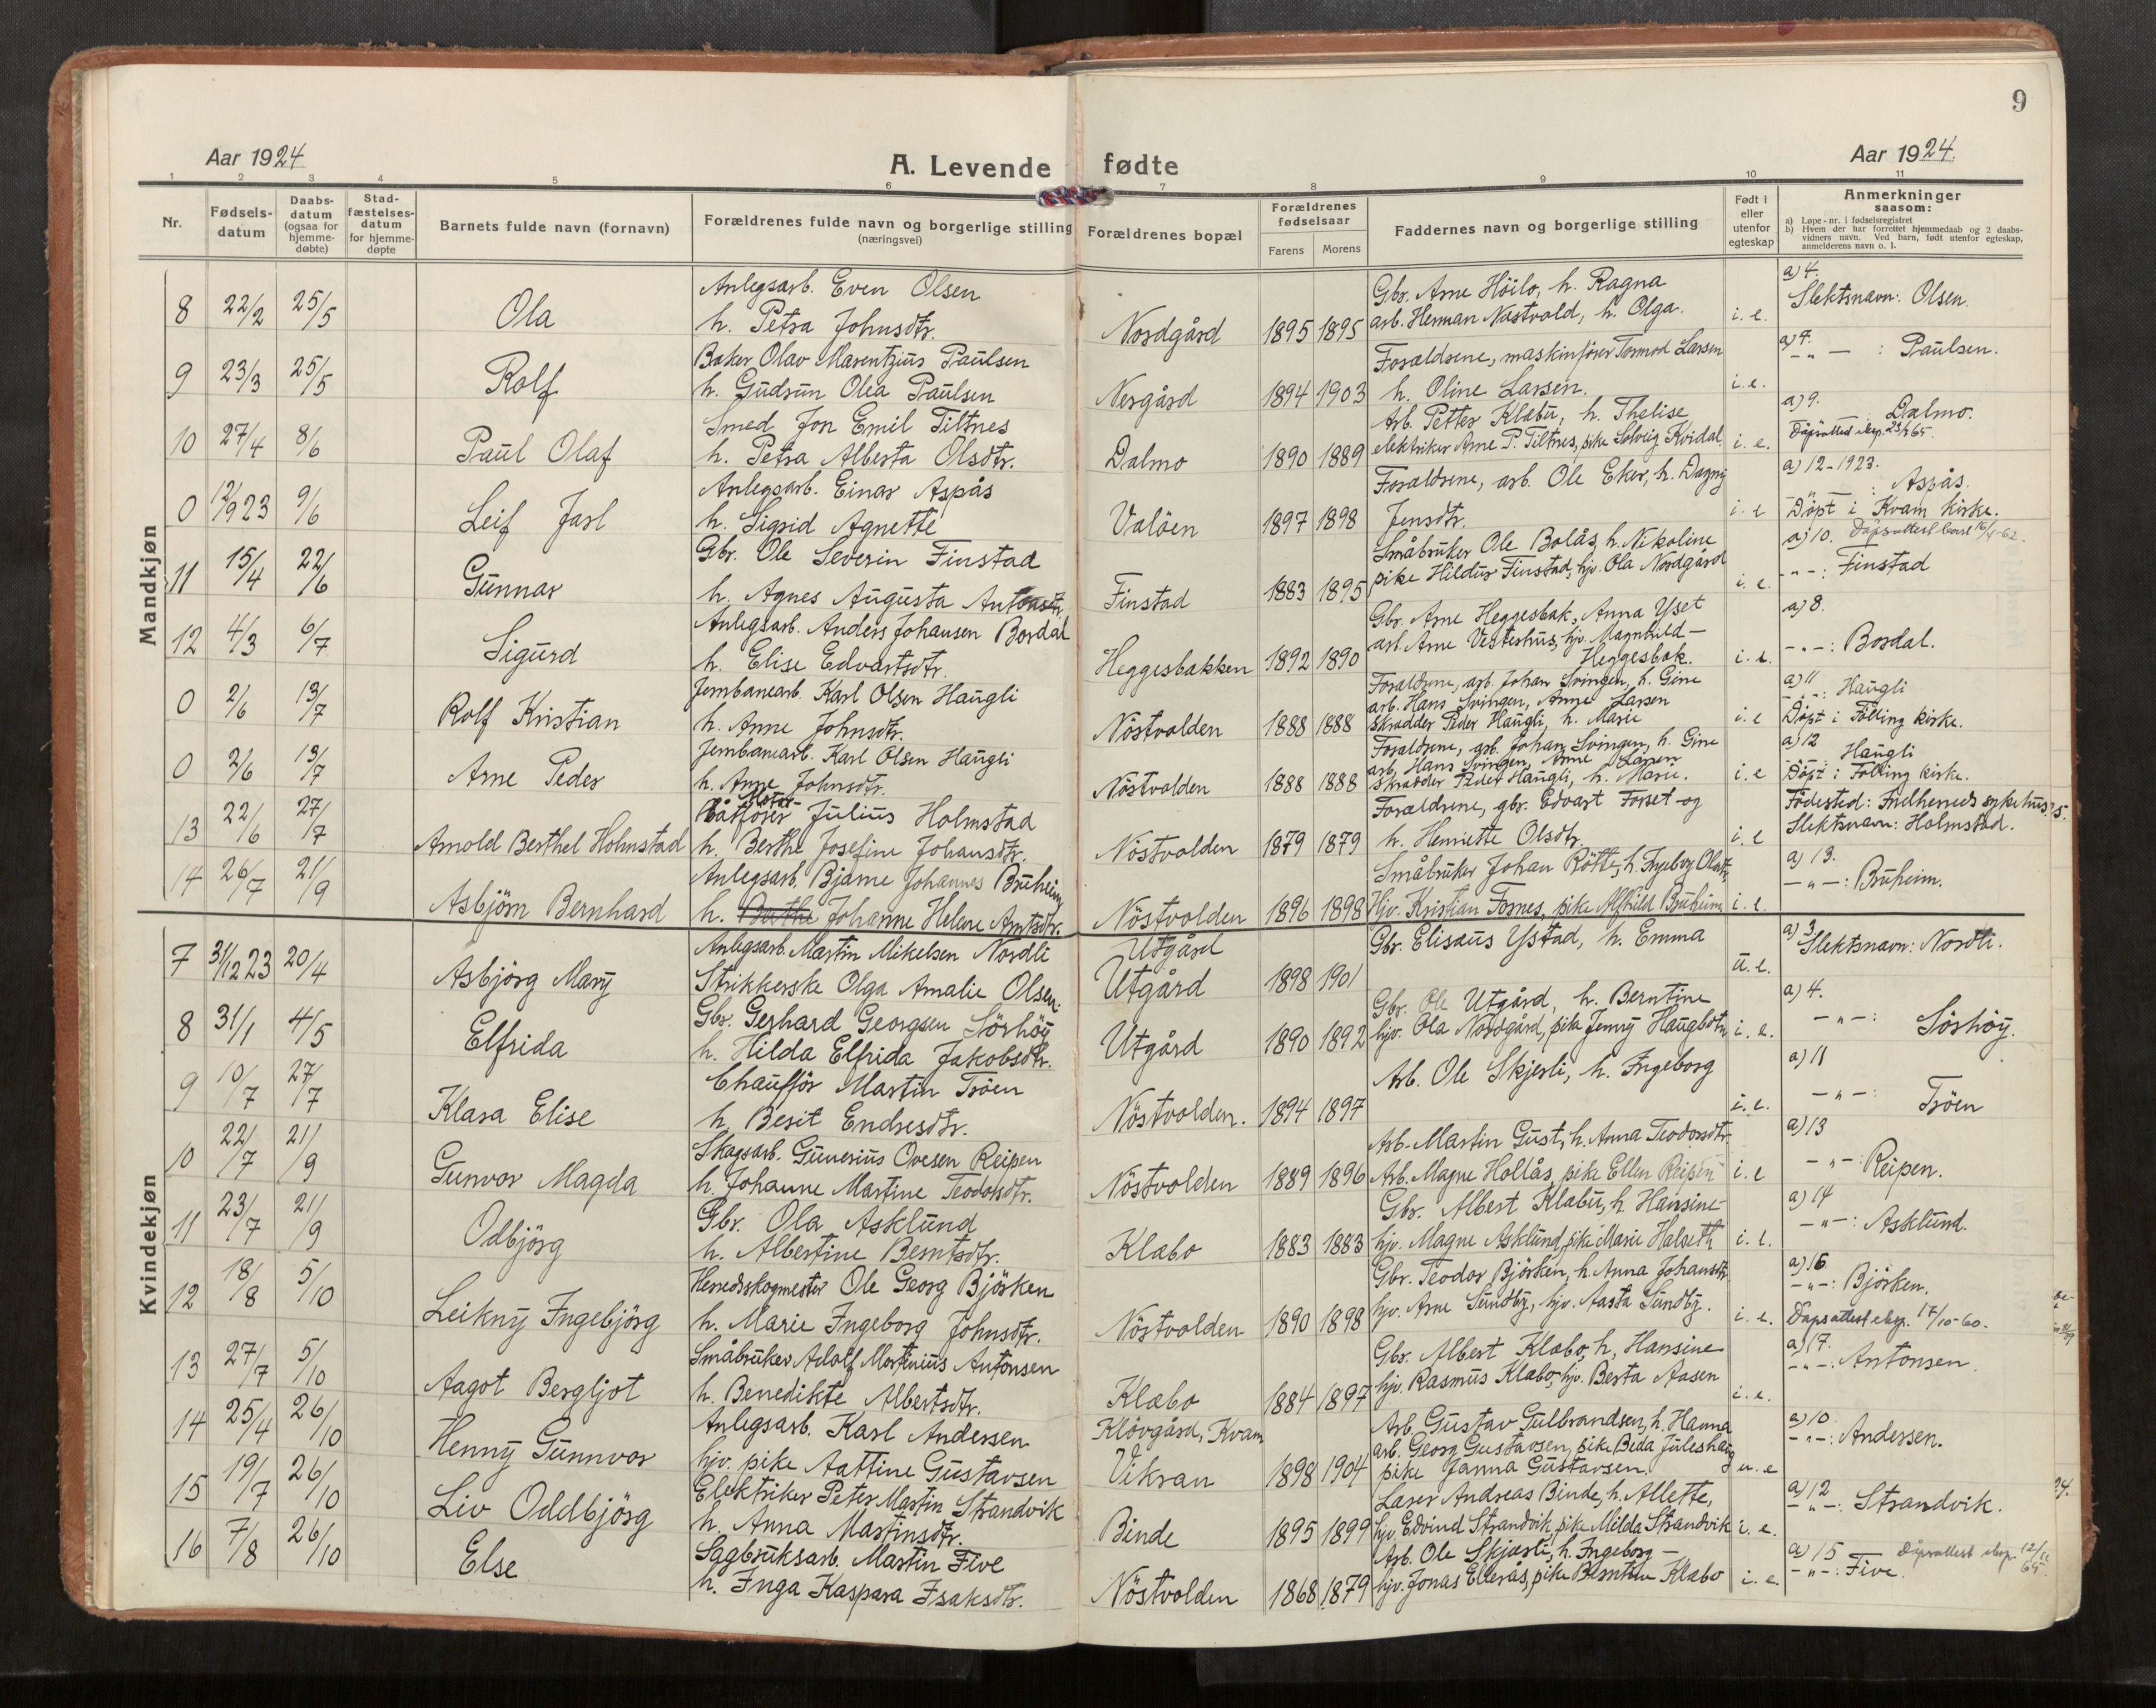 9
Aar 1924
A. Levende fødte
Aar 1924.
1 2 3 4 5 6 7 8 9 10 11
Nr.
Fødsels-datum
Daabs-datum (ogsaa for hjemme-døbte)
Stad-fæstelses-datum for hjemme-døpte
Barnets fulde navn (fornavn)
Forældrenes fulde navn og borgerlige stilling (næringsvei)
Forældrenes bopæl
Forældrenes fødselsaar
Farens Morens
Faddernes navn og borgerlige stilling
Født i eller utenfor egteskap
Anmerkninger saasom:
a) Løpe-nr. i fødselsregistret
b) Hvem der har forrettet hjemmedaab og 2 daabs-vidners navn. Ved barn, født utenfor egteskap, anmelderens navn o. l.
Mandkjøn
8 22/2 25/5 Ola
Anlegsarb. Even Olsen
h. Petra Johnsdtr.
Nordgård 1895 1895
Gbr. Arne Höilo, h. Ragna
arb. Herman Nastvold, h. Olga.
i. e.
a) 4.
Slektsnavn: Olsen.
9 23/3 25/5 Rolf
Baker Olav Marentzius Paulsen
h. Gudrun Olea Paulsen
Nergård 1894 1903
Forældrene, maskinfører Tormod Larsen
h. Oline Larsen.
i. e.
a) 7.
-"- : Paulsen.
10 27/4 8/6 Paul Olaf
Smed Jon Emil Tiltnes
h. Petra Alberta Olsdtr.
Dalmo 1890 1889
Arb. Petter Klæbu, h. Thelise
elektriker Arne P. Tiltnes, pike Solveig Kvidal
i. e.
a) 9.
: Dalmo.
Dåpsattest eksp. 23/2 65.
0 12/9 23 9/6 Leif Jarl
Anlegsarb. Einar Aspås
h. Sigrid Agnette
Valöen 1897 1898
Forældrene, arb. Ole Eker, h. Dagny
Jensdtr.
i. e
a) 12-1923.
-"- : Aspås.
Döpt i Kvam kirke.
11 15/4 22/6 Gunnar
Gbr. Ole Severin Finstad
h. Agnes Augusta Antonsdtr.
Finstad 1883 1895
Småbruker Ole Bolås, h. Nikoline
pike Hildur Finstad, hjv. Ola Nordgård
i. e.
a) 10. Dåpsattest 16/4-62.
-"-: Finstad
12 4/3 6/7 Sigurd
Anlegsarb. Anders Johansen Bordal
h. Elise Edvartsdtr.
Heggesbakken 1892 1890
Gbr. Arne Heggesbak, Anna Yset
arb. Arne Vesterhus, hjv. Magnhild
Heggesbak.
i. e.
a) 8.
-"-: Bordal.
0 2/6 13/7 Rolf Kristian
Jernbanearb. Karl Olsen Haugli
h. Anne Johnsdtr.
Nöstvolden 1888 1888
Forældrene, arb. Johan Svingen, h. Gine
arb. Hans Svingen, Anne Larsen
skrædder Peder Haugli, h. Marie
i. e
a) 11
-"-: Haugli
Döpt i Fölling kirke.
0 2/6 13/7 Arne Peder
Jernbanearb. Karl Olsen Haugli
h. Anne Johnsdtr.
Nöstvolden 1888 1888
Forældrene, arb. Johan Svingen, h. Gine
arb. Hans Svingen, Anne Larsen
skrædder Peder Haugli, h. Marie.
i. e
a) 12
Haugli
Döpt i Fölling kirke.
13 22/6 27/7 Arnold Berthel Holmstad
Motor-
Båtförer Julius Holmstad
h. Berthe Josefine Johansdtr.
Nöstvolden 1879 1879
Forældrene, gbr. Edvart Forset og
h. Henriette Olsdtr.
i. e
Födested: Indherreds sykehus: 5.
Slektsnavn: Holmstad.
14 26/7 21/9 Asbjörn Bernhard
Anlegsarb. Bjarne Johannes Bruheim
h. Berthe Johanne Helene Arntsdtr.
Nöstvolden 1896 1898
Småbruker Johan Rötte, h. Ingeborg Olsdtr.
Hjv. Kristian Fornes, pike Alfhild Bruheim
i. e.
a) 13.
-"-: Bruheim.
Kvindekjøn
7 31/12 23 20/4 Asbjörg Mary
Anlegsarb. Martin Mikelsen Nordli
Strikkerske Olga Amalie Olsen.
Utgård
Utgård 1898 1901
Gbr. Elisæus Ystad, h. Emma
u. e.
a) 3
Slektsnavn: Nordli.
8 31/1 4/5 Elfrida
Gbr. Gerhard Georgsen Sörhöy
h. Hilda Elfrida Jakobsdtr.
Utgård 1890 1892
Gbr. Ole Utgård, h. Berntine
hjv. Ola Nordgård, pike Jenny Haugbotn
i. e.
a) 4.
-"-: Sörhöy.
9 10/7 27/7 Klara Elise
Chaufför Martin Tröen
h. Berit Endresdtr.
Nöstvolden. 1894 1897
Arb. Ole Skjerli, h. Ingeborg
i. e.
a) 11
-"-: Tröen
10 22/7 21/9 Gunvor Magda
Skogsarb. Gunerius Ovesen Reipen
h. Johanne Martine Teodorsdtr.
Nöstvolden 1889 1896
Arb. Martin Gust, h. Anna Teodorsdtr.
Arb. Magne Hollås, pike Ellen Reipen
i. e
a) 13
-"-: Reipen.
11 23/7 21/9 Odbjörg
Gbr. Ola Asklund
h. Albertine Berntsdtr.
Klæbo 1883 1883
Gbr. Albert Klæbu, h. Hansine
hjv. Magne Asklund, pike Marie Halseth
i. e.
a) 14
-"-: Asklund.
12 18/8 5/10 Leikny Ingebjörg
Herredsskogmester Ole Georg Björken
h. Marie Ingeborg Johnsdtr.
Nöstvolden 1890 1898
Gbr. Teodor Björken, h. Anna Johansdtr.
hjv. Arne Sundby, hjv. Aasta Sundby.
i. e.
a) 16
-"-: Björken.
Dåpsattest eksp. 17/10-60.
13 27/7 5/10 Aagot Bergljot
Småbruker Adolf Martinius Antonsen
h. Benedikte Albertsdtr.
Klæbo 1884 1897
Gbr. Albert Klæbo, h. Hansine
hjv. Rasmus Klæbo, hjv. Berta Aasen
i. e.
a) 17.
-"-: Antonsen.
14 25/4 26/10 Henny Gunnvor
Anlegsarb. Karl Andersen
hjv. pike Aattine Gustavsen
Klövgård, Kvam
Vikran 1898 1904
Arb. Gustav Gulbrandsen, h. Hanna
arb. Georg Gustavsen, pike Beda Juleshaug
pike Janna Gustavsen.
u. e
a) 10
-"-: Andersen.
15 19/7 26/10 Liv Oddbjörg
Elektriker Peter Martin Strandvik
h. Anna Martinsdtr.
Binde 1895 1899
Lærer Andreas Binde, h. Allette,
hjv. Edvind Strandvik, pike Milda Strandvik
i. e.
a) 12
-"-: Strandvik.
16 7/8 26/10 Else
Sagbruksarb. Martin Five
h. Inga Kaspara Isaksdtr.
Nöstvolden 1868 1879
Arb. Ole Skjærli, h. Ingeborg
hjv. Jonas Ellerås, pike Berntine Klæbo
i. e.
a) 15 Dåpsattest eksp. 12/11 65.
-"-: Five.